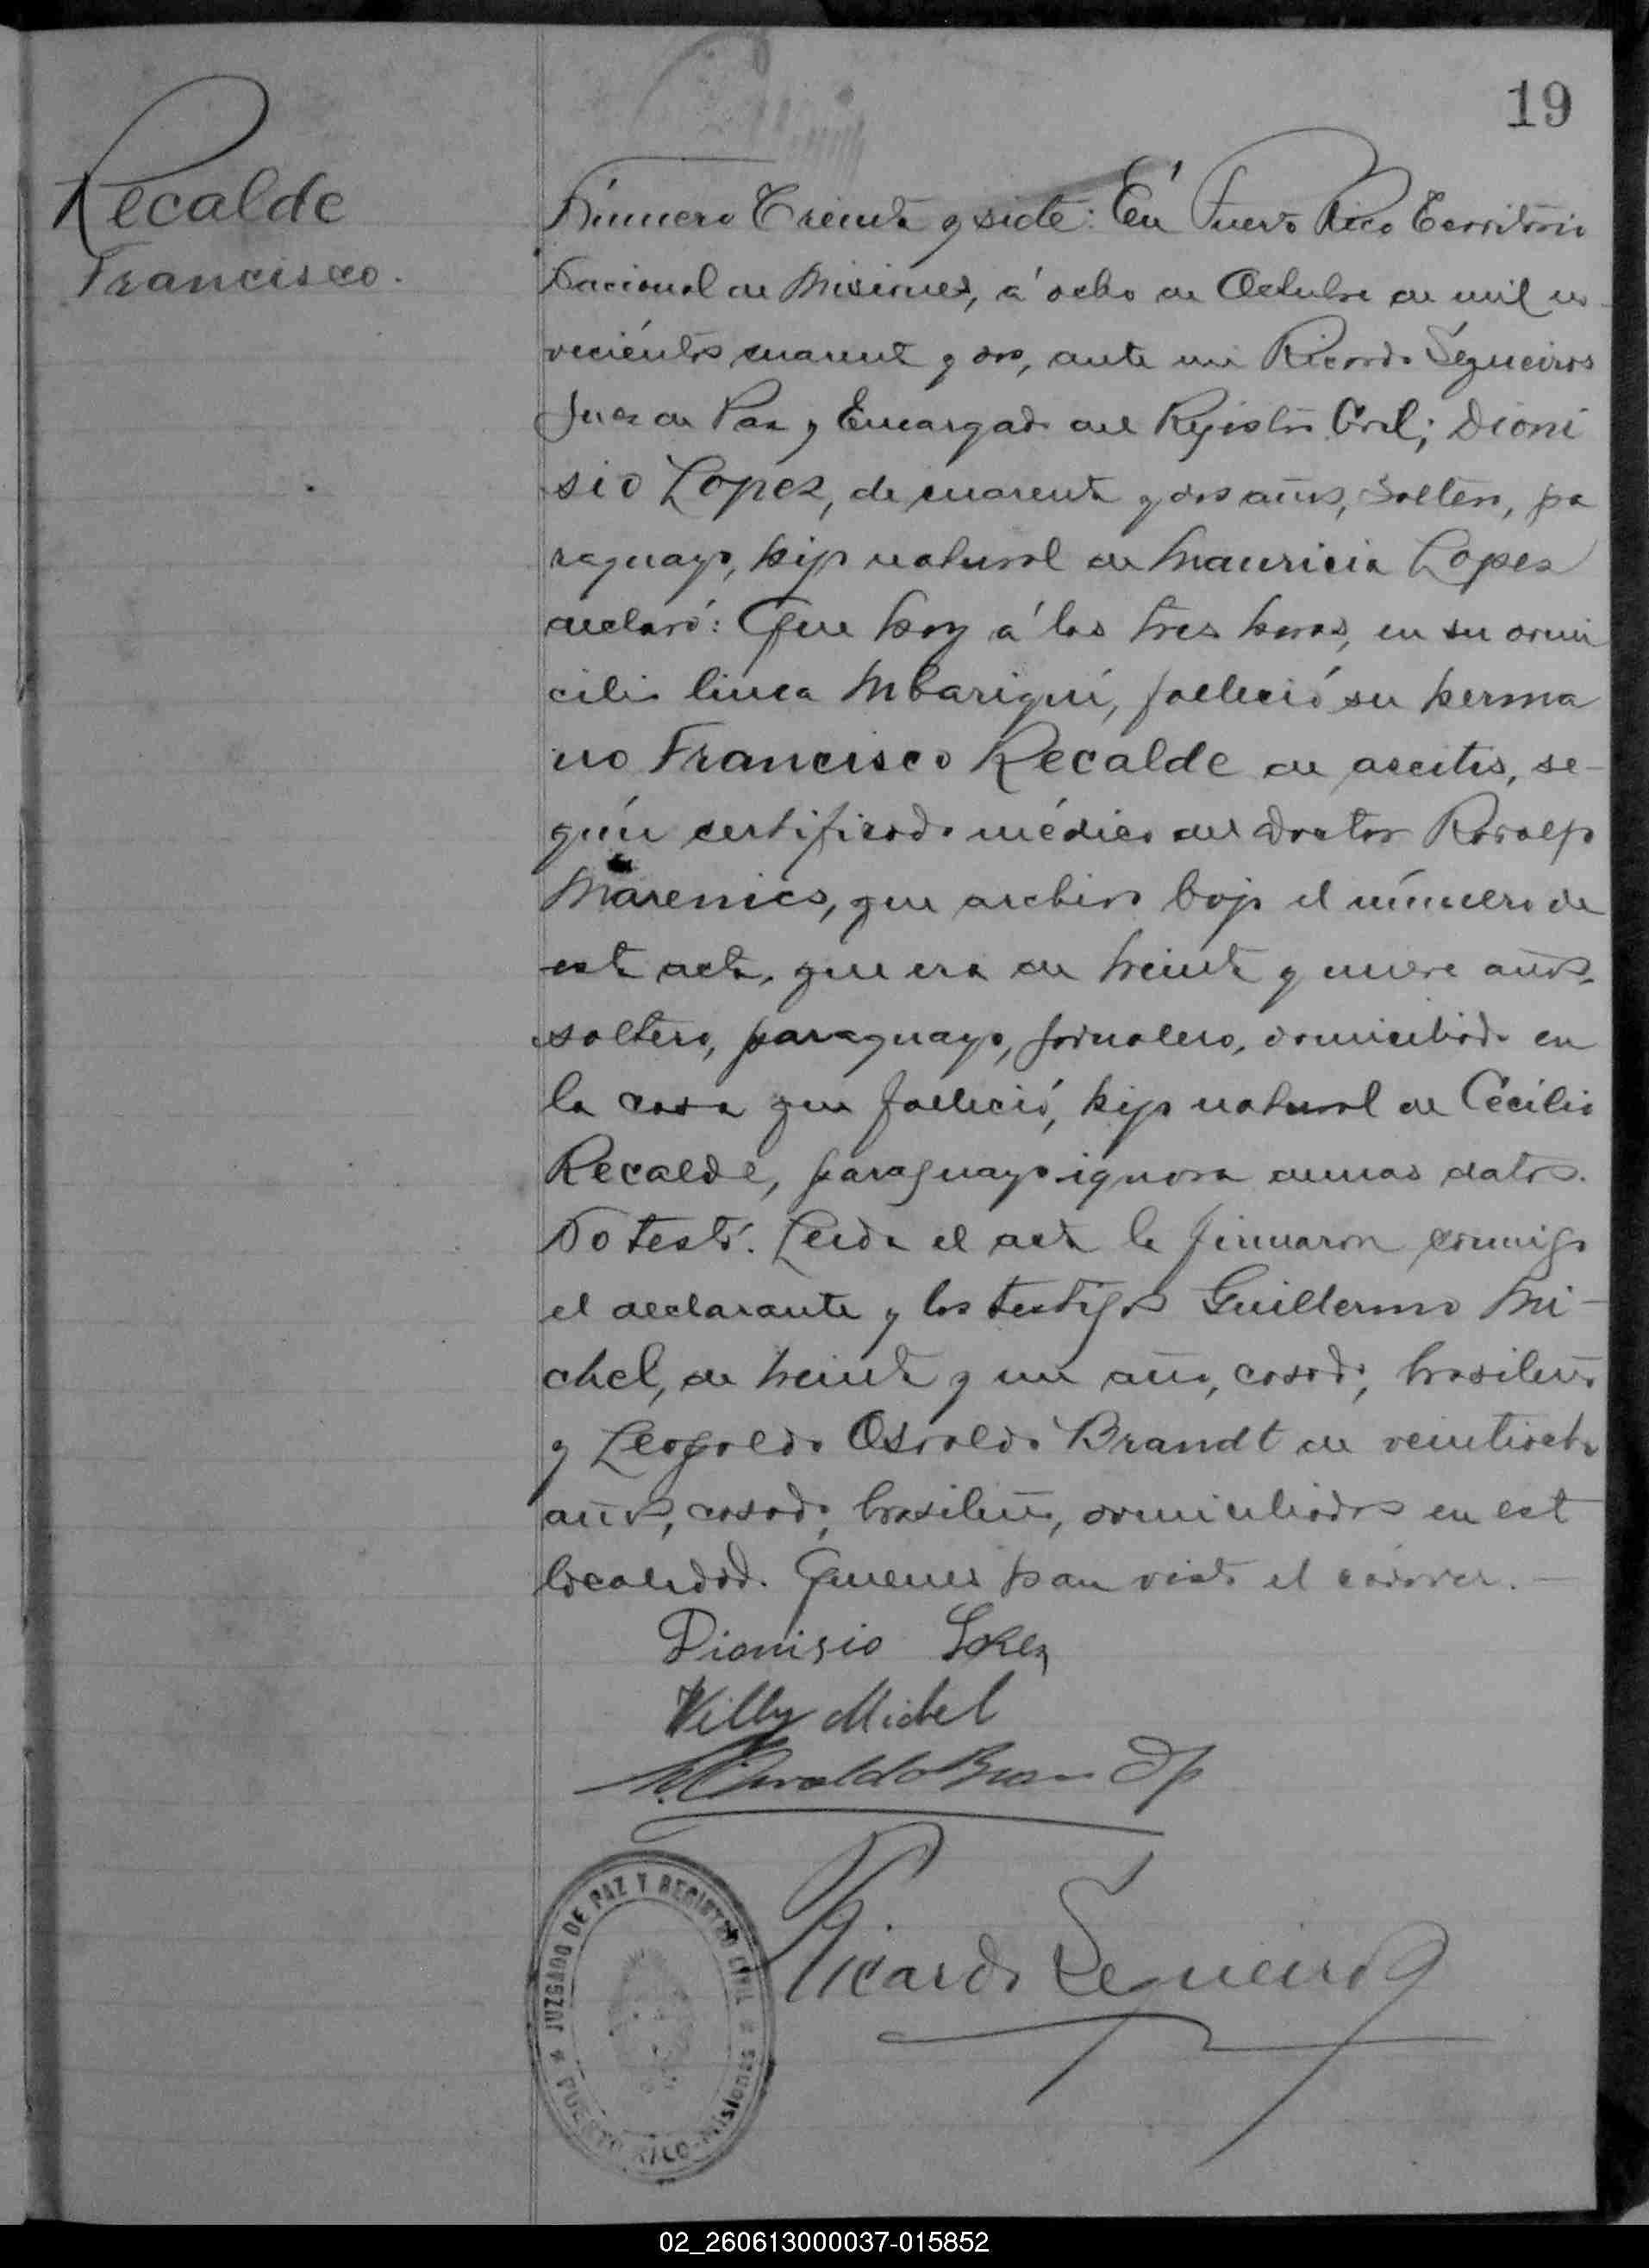 19
Recalde
Francisco.
Número Treinta y siete: En Puerto Rico Territorio
Nacional de Misiones, á ocho de Octubre de mil no-
vecientos cuarenta y dos, ante mi Ricardo Sequeiros
Juez de Paz y Encargado del Registro Civil; Dioni
sio Lopez, de cuarenta y dos años, soltero, pa
raguayo, hijo natural de Mauricia Lopez
declaró: Que hoy á las tres horas, en su domi
cilio linea Mbariguí, falleció su herma
no Francisco Recalde de ascitis, se-
gún certificado médico del doctor Rodolfo
Marenics, que archivo bajo el número de
esta acta, que era de treinta y nueve años,
soltero, paraguayo, jornalero, domiciliado en
la casa que falleció, hijo natural de Cecilio
Recalde, paraguayo ignora demas datos.
No testó. Leida el acta la firmaron conmigo
el declarante y los testigos Guillermo Mi-
chel, de treinta y un año, casado, brasileño
y Leopoldo Osvaldo Brandt de veintisiete
años, casado, brasileño, domiciliados en esta
localidad. Quienes han visto el cádaver.-
Dionisio Lopez
Willy Michel
L. Osvaldo Brandt
Ricardo Sequeiros
JUZGADO DE PAZ Y REGISTRO CIVIL
PUERTO RICO - Misiones
02_260613000037-015852